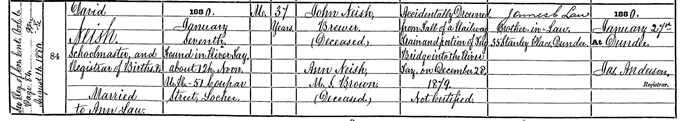 84
David
Neish
Schoolmaster, and
Registrar of Births, &c
Married
to Ann Law.
1880.
January
Seventh
Found in River Tay,
about 12h. Noon.
U.R. – 51 Coupar
Street, Lochee.
M.
37
Years.
John Neish,
Brewer.
(Deceased)
Ann Neish,
M.S. Brown
(Deceased)
Accidentally Drowned
from Fall of a Railway
Train and portion of Tay
Bridge into the River
Tay, on December 28,
1879.
Not Certified.
James L. Law
Brother-in-Law.
55 Stanley Place, Dundee.
1880.
January 27th
At Dundee.
Jas Anderson,
Registrar.